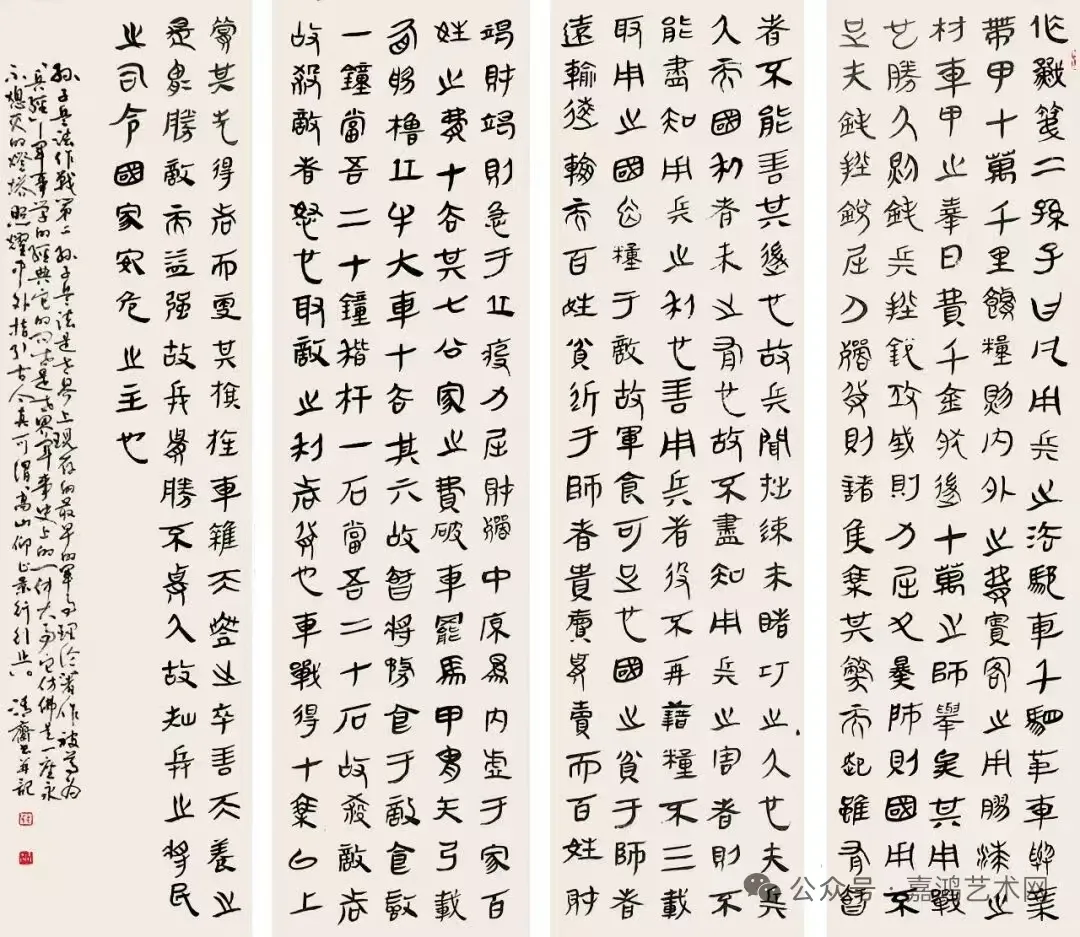 作戰篇二孫子曰凡用兵之法馳車千駟革車千乘
帶甲十萬千里饋糧則內外之費賓客之用膠漆之
材車甲之奉日費千金然後十萬之師舉矣其用戰
也勝久則鈍兵挫銳攻城則力屈久暴師則國用不
足夫鈍挫銳屈力殫貨則諸侯乘其弊而起雖有智
者不能善其後也故兵聞拙速未睹巧之久也夫兵
久而國利者未之有也故不盡知用兵之害者則不
能盡知用兵之利也善用兵者役不再藉糧不三載
取用之國因糧于敵故軍食可足也國之貧于師者
遠輸遠輸而百姓貧近于師者貴賣貴賣而百姓財
竭財竭則急于丘疫力屈財殫中原易內虛于家百
姓之費十去其七公家之費破車罷馬甲冑矢弓載
盾矛櫓丘牛大車十去其六故智將務食于敵食敵
一鐘當吾二十鐘稭杆一石當吾二十石故殺敵者
故殺敵者怒也取敵之利者貨也車戰得十乘以上
賞其先得者而更其旗旌車雜而乘之卒善而養之
是謂勝敵而益强故兵貴勝不貴久故知兵之將民
之司令國家安危之主也
孫子兵法作戰第二孫子兵法是世界上現存的最早的軍事理论著作被尊为
兵經軍事学的經典它的问世是世界軍事史上的一件大事它仿佛是一座永
不熄灭的燈塔照耀中外指引古人真可謂高山仰止景行行止清齋書並記
公众号·嘉鸿艺术网